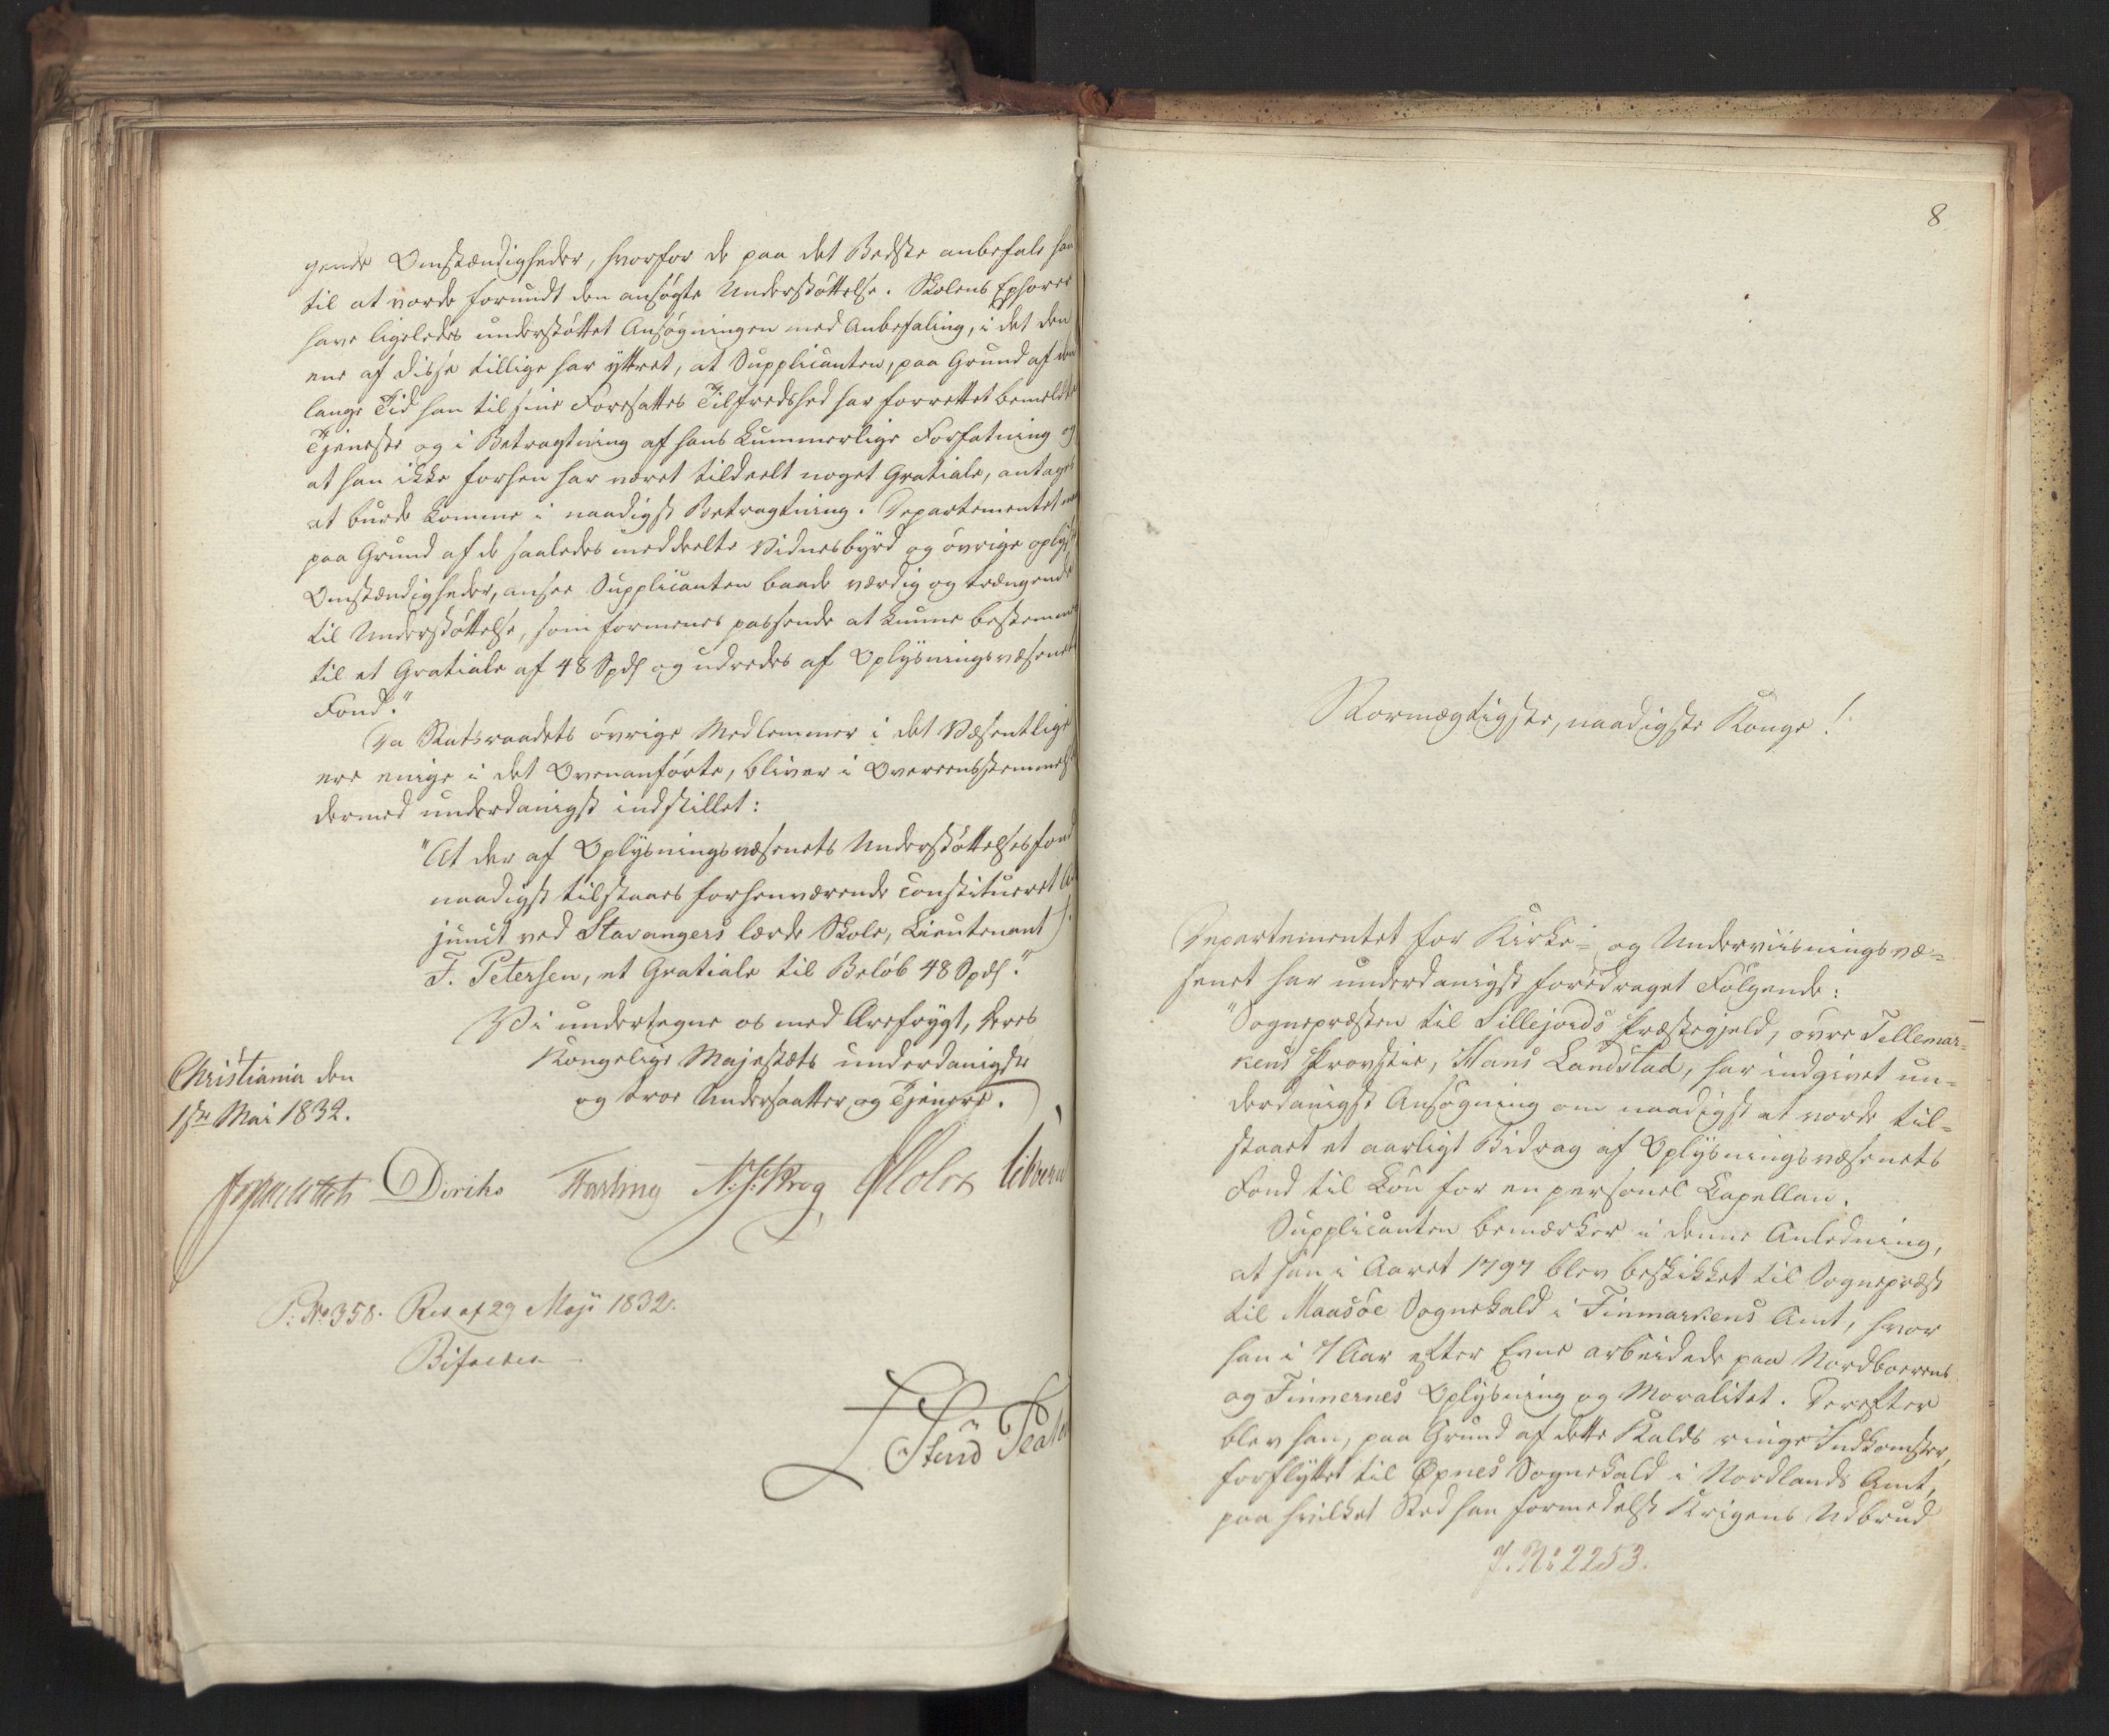 gende Omstændigheder, hvorfor de paa det Bedste anbefale ham
til at vorde forundt den ansøgte Understøttelse. Skolens Ephorer
have ligeledes understøttet Ansøgningen med Anbefaling, i det den
ene af disse tillige har yttret, at Supplicanten, paa Grund af den
lange Tid han til sine Foresattes Tilfredshed har forrettet bemeldte
Tjeneste og i Betragtning af hans kummerlige Forfatning og
at han ikke forhen har været tildeelt noget Gratiale, antages
at burde komme i naadigst Betragtning. Departementet maa
paa Grund af de saaledes meddeelte Vidnesbyrd og øvrige oplyste
Omstændigheder, ansee Supplicanten baade værdig og trængende
til Understøttelse, som formenes passende at kunne bestemmes
til et Gratiale af 48 Spd og udredes af Oplysningsvæsenets
Fond."
Da Statsraadets øvrige Medlemmer i det Væsentlige
ere enige i det Ovenanførte, bliver i Overeensstemmelse
dermed underdanigst indstillet:
"At der af Oplysningsvæsenets Understøttelsesfond
naadigst tilstaaes forhenværende constitueret Ad-
junct ved Stavangers lærde Skole, Lieutenant
F. Petersen, et Gratiale til Beløb 48 Spd."
Vi undertegne os med Ærefrygt, Deres
Kongelige Majestæts underdanigste
og troe Undersaatter og Tjenere.
Christiania den
1ste Mai 1832.
Diriks N. J. Krog Holst
P: No 358. Res af 29 Maji 1832.
Bifaldes
8
Stormægtigste, naadigste Konge!
Departementet for Kirke- og Underviisningsvæ-
senet har underdanigst foredraget Følgende:
"Sognepræsten til Sillejords Præstegjeld, øvre Tellemar-
kens Provstie, Hans Landstad, har indgivet un-
derdanigst Ansøgning om naadigst at vorde til-
staaet et aarligt Bidrag af Oplysningsvæsenets
Fond til Løn for en personel Capellan.
Supplicanten bemærker i denne Anledning,
at han i Aaret 1797 blev beskikket til Sognepræst
til Maasøe Sognekald i Finmarkens Amt, hvor
han i 7 Aar efter Evne arbeidede paa Nordboerens
og Finnernes Oplysning og Moralitet. Derefter
blev han, paa Grund af dette Kalds ringe Indkomster,
forflyttet til Øxnes Sognekald i Nordlands Amt,
paa hvilket Sted han formedelst Krigens Udbrud
J. No 2253.